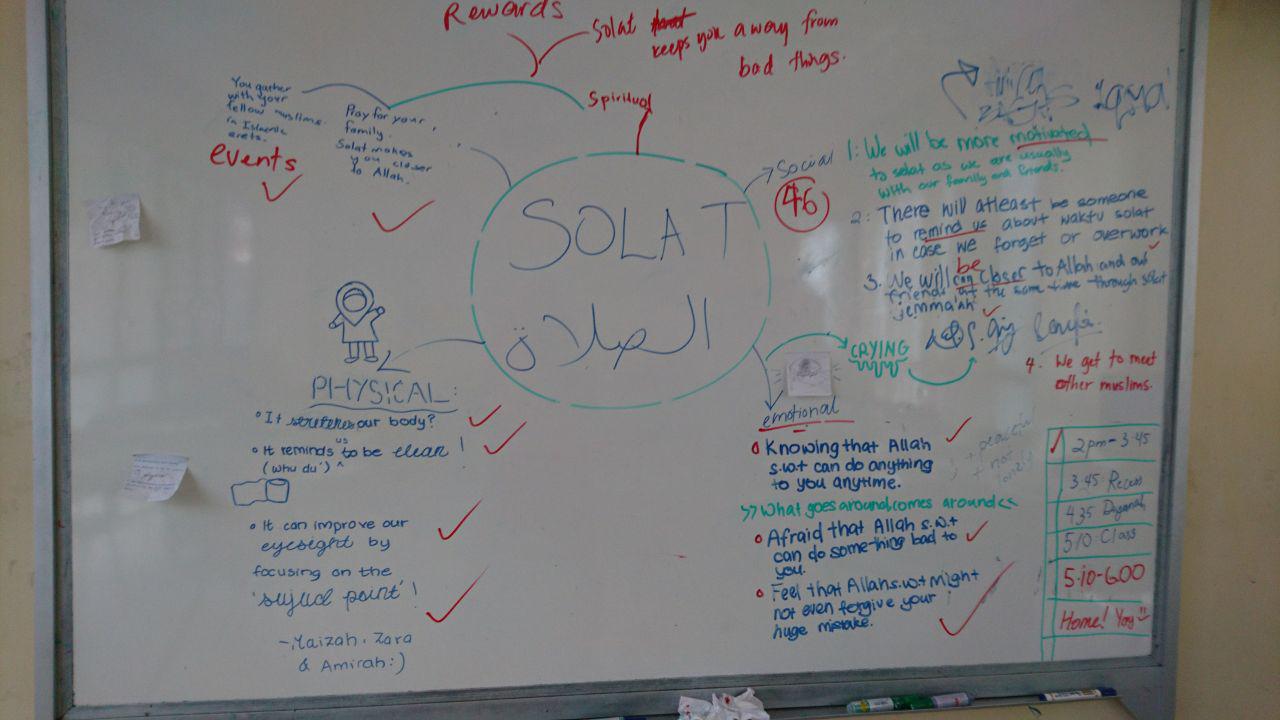 Rewards
Solat
keeps you away from
bad things.
Spiritual
You gather
with your
fellow muslims
in Islamic
erets.
events
Pray for your
family.
Solat makes
you closer
to Allah.
SOLAT
الصلاة
Social
46
1: We will be more motivated
to solat as we are usually
with our family and friends.
2: There will atleast be someone
to remind us about waktu solat
in case we forget or overwork
3. We will be closer to Allah and our
friends at the same time through solat
jemma'ah
4. We get to meet
other muslims.
PHYSICAL:
• It stretches our body?
• It reminds us to be clean!
(whu du')
• It can improve our
eyesight by
focusing on the
'sujud point'!
- Maizah, Zara
& Amirah:)
CRYING
emotional
• Knowing that Allah
s.w.t can do anything
to you anytime.
>> What goes around comes around <<
• Afraid that Allah s.w.t
can do some-thing bad to
you.
• Feel that Allah s.w.t might
not even forgive your
huge mistake.
+ peaceful
+ not
lonely
2pm - 3.45
3.45 Recess
4.35
5.10 Class
5.10-6.00
Home! Yay